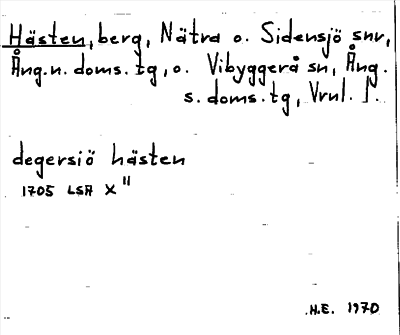 Hästen, berg, Nätra o. Sidensjö snr,
Ång.n. doms.tg, o. Vibyggerå sn, Ång.
s. doms.tg, Vrnl.
degersiö hästen
1705 LSA X"
H.E. 1970